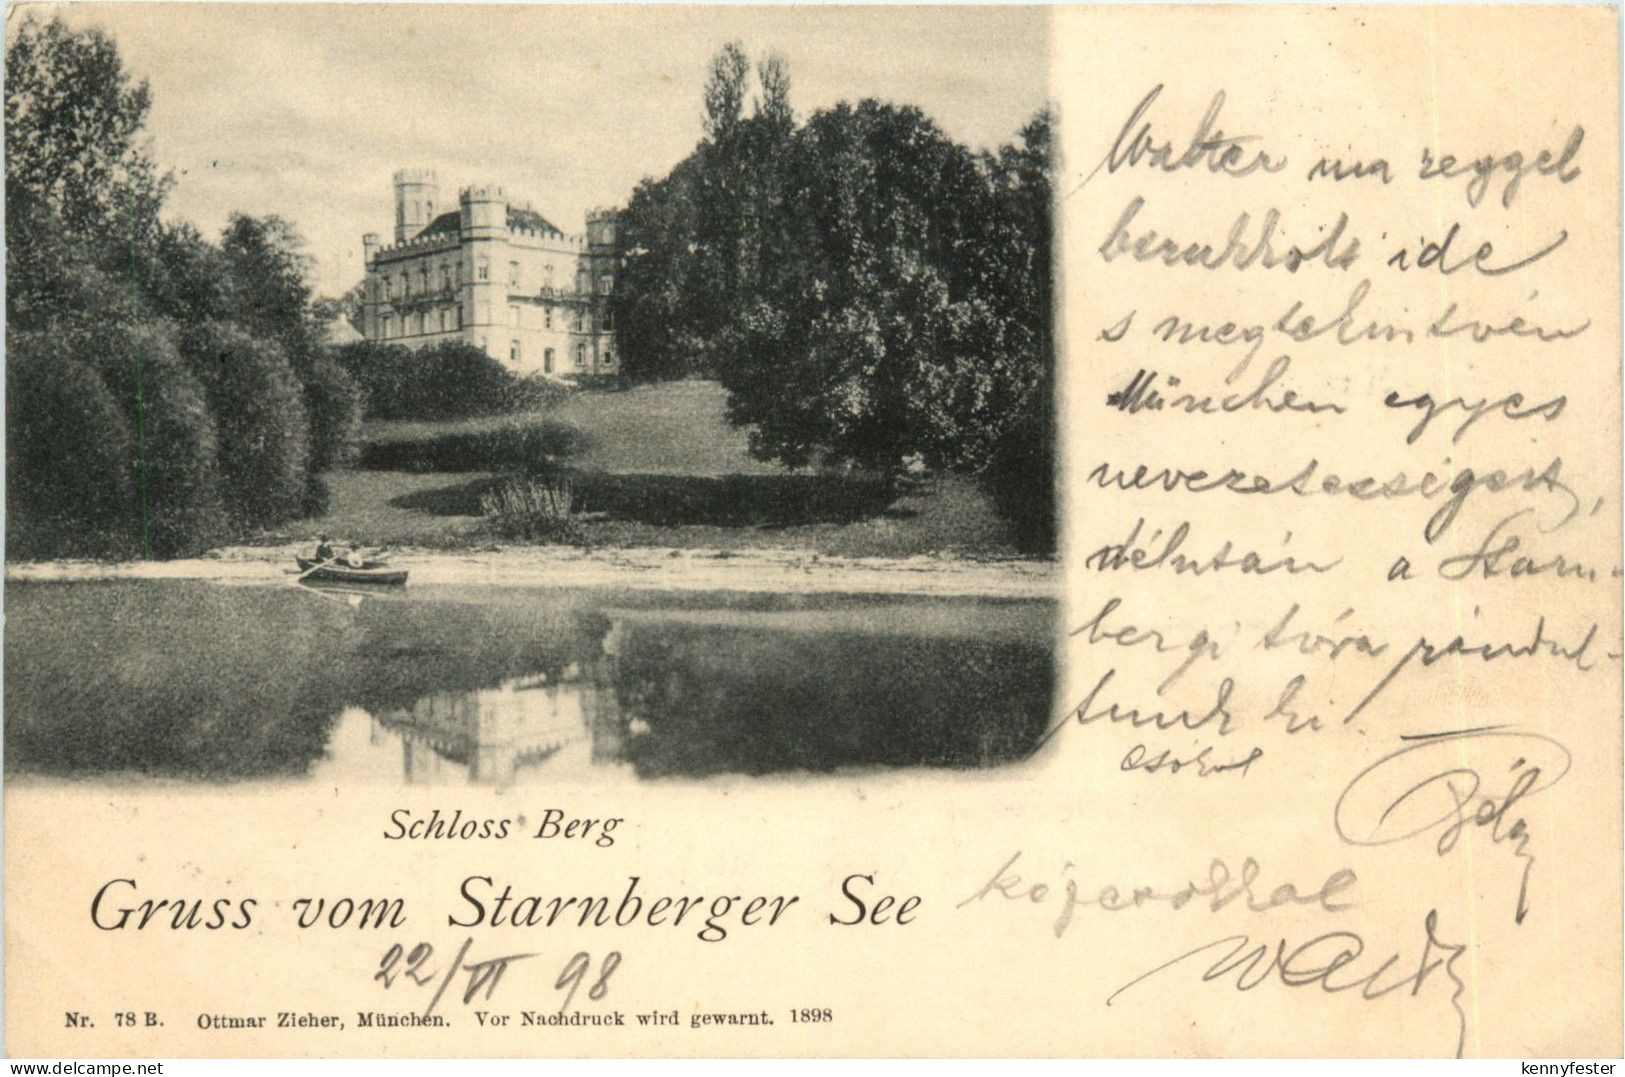 Walter ma reggel
berukkolt ide
s megtekintvén
München egyes
nevezetességeit,
délután a Starn-
bergi tóra rándul-
tunk ki.
Csókol
Béla
Schloss Berg
Gruss vom Starnberger See
kézcsókkal
Walt
22/VI 98
Nr. 78 B. Ottmar Zieher, München. Vor Nachdruck wird gewarnt. 1898
www.delcampe.net
kennyfester